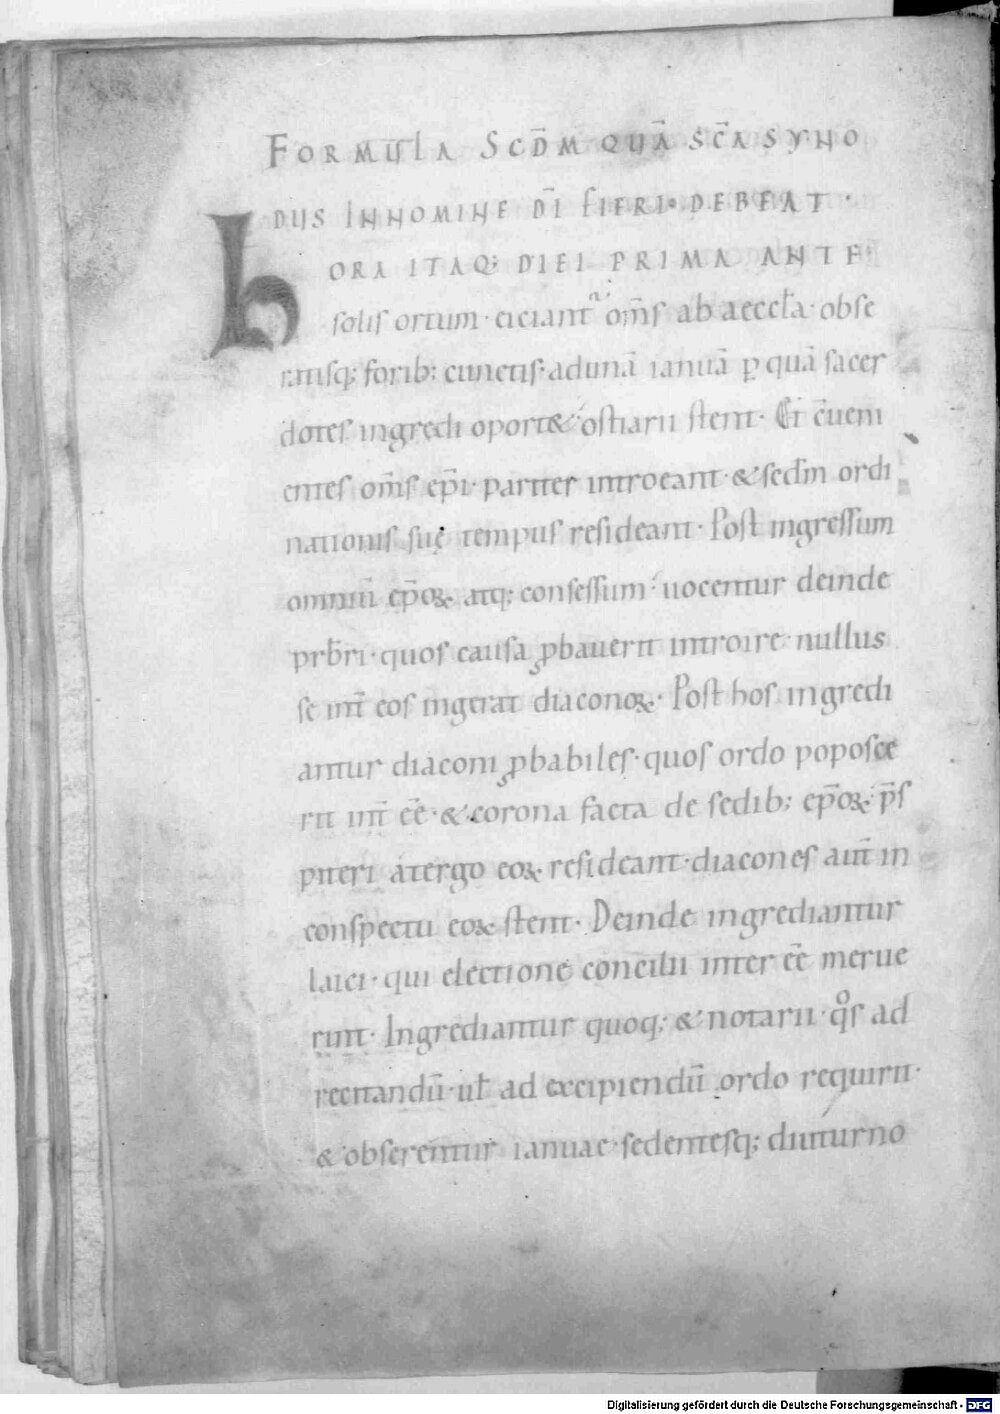 FORMULA SCD̄M QUĀ SC̄A SYNO
DUS INNOMINE DĪ FIERI DEBEAT ·
HORA ITAQ; DIEI PRIMA ANTE
solis ortum · eiciant᷑ om̄s ab aeccl̄a · obse
ratisq; forib; cunctis · adunā ianuā ꝑ quā sacer
dotes ingredi oport& · ostiarii stent · Et c̄ueni
entes om̄s ep̄i · pariter introeant · & secd̄m ordi
nationis suę tempus resideant · Post ingressum
omniū ep̄oꝝ atq; consessum · uocentur deinde
prb̄ri · quos causa ꝓbauerit introire · nullus
se int̄ eos ingerat diaconoꝝ · Post hos ingredi
antur diaconi ꝓbabiles · quos ordo poposce
rit int̄ eē · & corona facta de sedib; ep̄oꝝ · p̄s
piteri atergo eoꝝ resideant · diacones aut̄ in
conspectu eoꝝ stent · Deinde ingrediantur
laici · qui electione concilii inter eē merue
rint · Ingrediantur quoq; & notarii · qͦs ad
recitandū · ul̄ ad excipiendū ordo requirit ·
& obserentur ianuae · sedentesq; diuturno
Digitalisierung gefördert durch die Deutsche Forschungsgemeinschaft - DFG